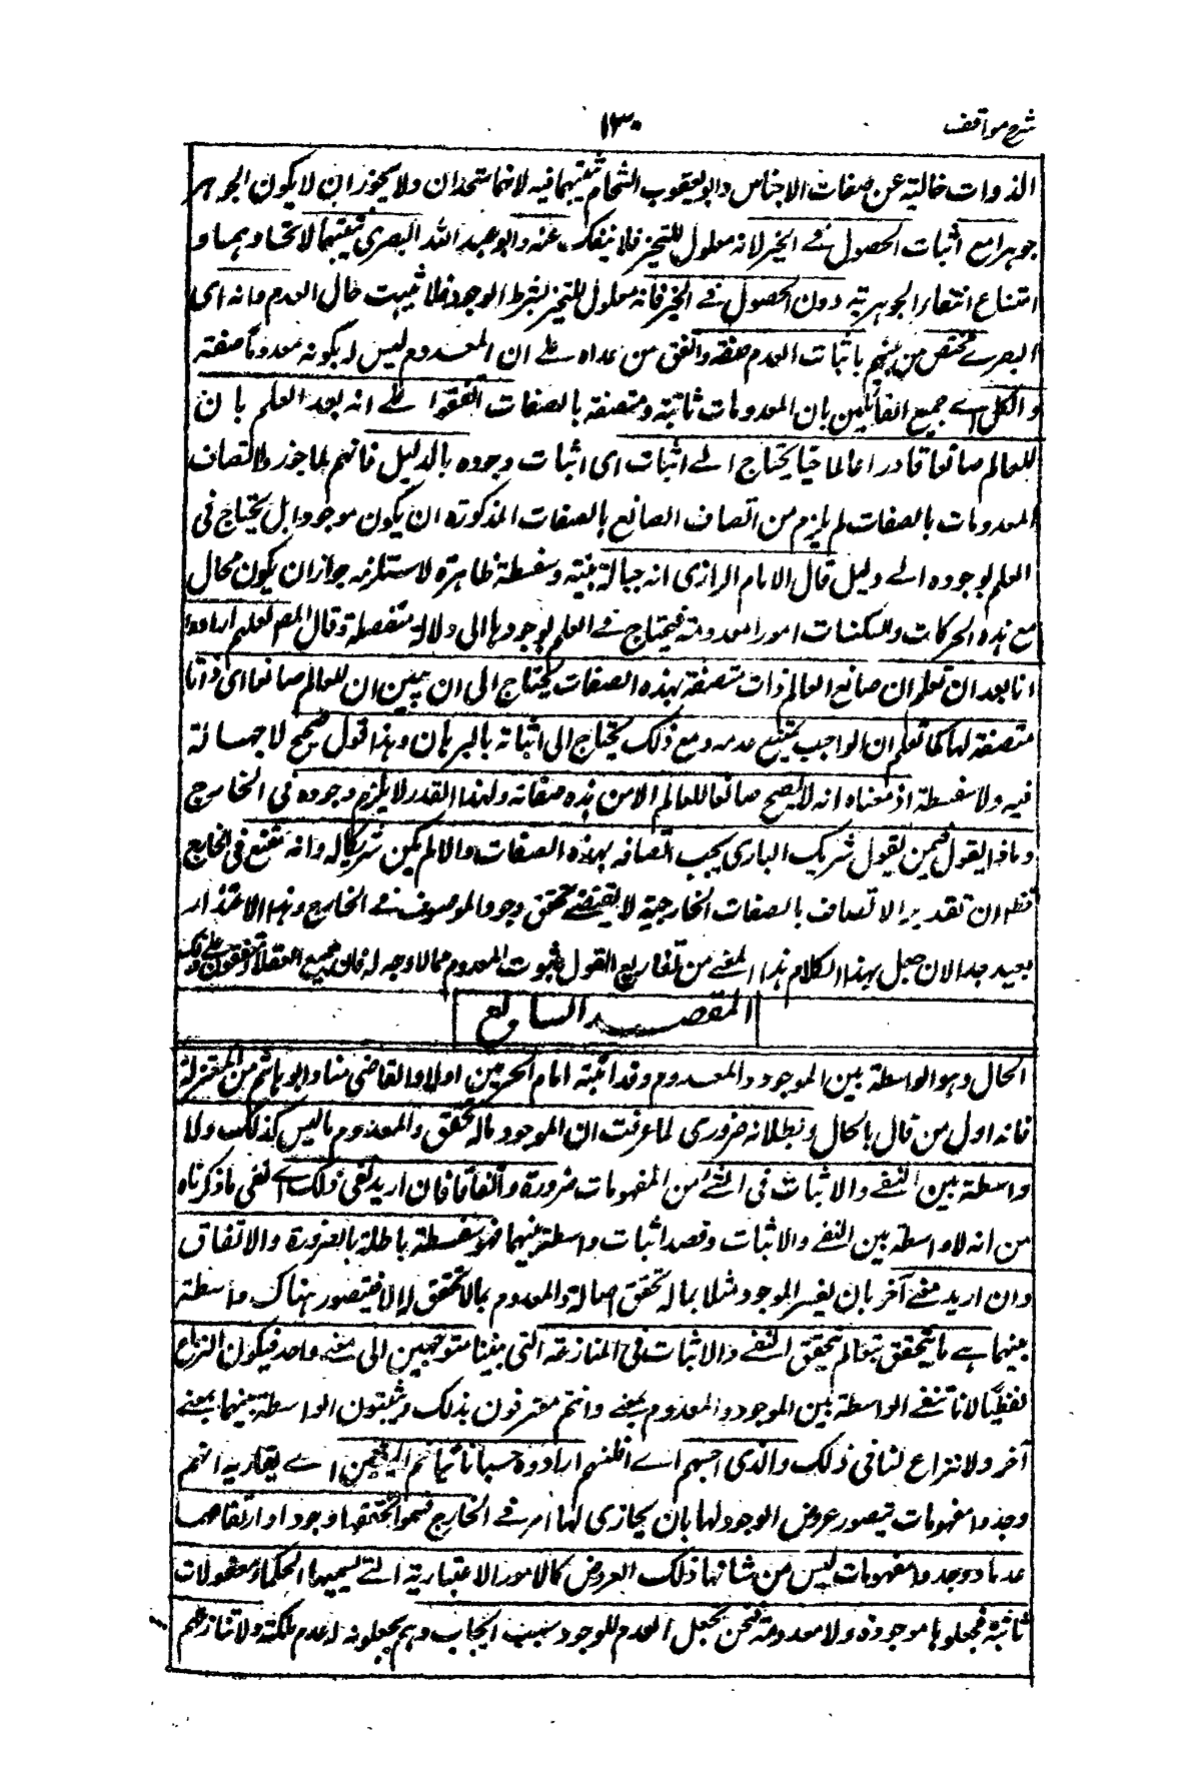 شرح مواقف
١٣٠
الذوات خالية عن صفات الاجناس وابو يعقوب الشحام يثبتهما فيه لانهما متحدان ولا يجوز ان لا يكون الجوهر
جوهرا مع اثبات الحصول في الحيز لانه معلول للتحيز فلا ينفك عنه وابو عبد الله البصري يثبتهما لاتحادهما و
امتناع انتفاء الجوهرية دون الحصول في الحيز فانه معلول للتحيز بشرط الوجود فلا يثبت حال العدم وانه اى
البصرے مختص من بينهم باثبات العدم صفة واتفق من عداه علے ان المعدوم ليس له بكونه معدوما صفة
والكل اے جميع القائلين بان المعدومات ثابتة ومتصفة بالصفات اتفقوا علے انه بعد العلم بان
للعالم صانعا قادرا عالما حيا يحتاج الے اثبات اى اثبات وجوده بالدليل فانهم لما جوزوا اتصاف
المعدومات بالصفات لم يلزم من اتصاف الصانع بالصفات المذكورة ان يكون موجودا بل يحتاج فى
العلم بوجوده الے دليل قال الامام الرازى انه جهالة بينة وسفسطة ظاهرة لاستلزامه جواز ان يكون محال
مع هذه الحركات والسكنات امورا معدومة فيحتاج في العلم بوجودها الى دلالة منفصلة وقال المصم لعلهم ارادوا
انا بعد ان نعلم ان صانع العالم ذات متصفة بهذه الصفات يحتاج الى ان نبين ان للعالم صانعا اى ذاتا
متصفة لها كما نعلم ان الواجب يمتنع عدمه ومع ذلك يحتاج الى اثباته بالبرهان وهذا قول صحيح لا جهالة
فيه ولا سفسطة اذ معناه انه لا يصح صانعا للعالم الا من هذه صفاته ولهذا القدر لا يلزم وجوده فى الخارج
وماذا القول فيمن يقول شريك البارى يجب اتصافه بهذه الصفات والا لم يكن شريكا له وانه ممتنع فى الخارج
فظهر ان تقدير الاتصاف بالصفات الخارجية لا يقتضے تحقق وجود الموصوف في الخارج وهذا الاعتذار
بعيد جدا لان جعل بهذا الكلام هذا المعنے من تفاريع القول بثبوت المعدوم مما لا وجه له فان جميع العقلاء متفقون على ذلك
المقصد السابع
الحال وهو الواسطة بين الموجود والمعدوم وقد اثبته امام الحرمين اولا والقاضى منا وابو هاشم من المعتزلة
فانه اول من قال بالحال وبطلانه ضرورى لما عرفت ان الموجود ماله تحقق والمعدوم ما ليس كذلك ولا
واسطة بين النفے والاثبات فى الشئ من المفهومات ضرورة واتفاقا فان اريد نفى ذلك اے نفى ما ذكرناه
من انه لا واسطة بين النفے والاثبات وقصد اثبات واسطة بينهما فهو سفسطة باطلة بالضرورة والاتفاق
وان اريد معنے آخر بان يفسر الموجود مثلا بما له تحقق اصالة والمعدوم بما لا تحقق له اصلا فيتصور هناك واسطة
بينهما ہے ما يتحقق تبعا لم يتحقق النفے والاثبات فى المنازعة التى بيننا متوجهين الى معنے واحد فيكون النزاع
لفظيا لانا ننفے الواسطة بين الموجود والمعدوم بمعنے وانتم معترفون بذلك وتثبتون الواسطة بينهما بمعنے
آخر ولا نزاع لنا فى ذلك والذى احسبهم اے اظنهم ارادوه حسبانا اے يقاربه انهم
وجدوا مفهومات يتصور عروض الوجود لها بان يحاذى لها امر في الخارج فسموا تحققها وجودا وارتفاعها
عدما ووجدوا مفهومات ليس من شانها ذلك العروض كالامور الاعتبارية التے يسميها الحكماء معقولات
ثانية فجعلوها لا موجودة ولا معدومة فنحن نجعل العدم للوجود سلب ايجاب وهم يجعلونه له عدم ملكة ولا ننازعهم